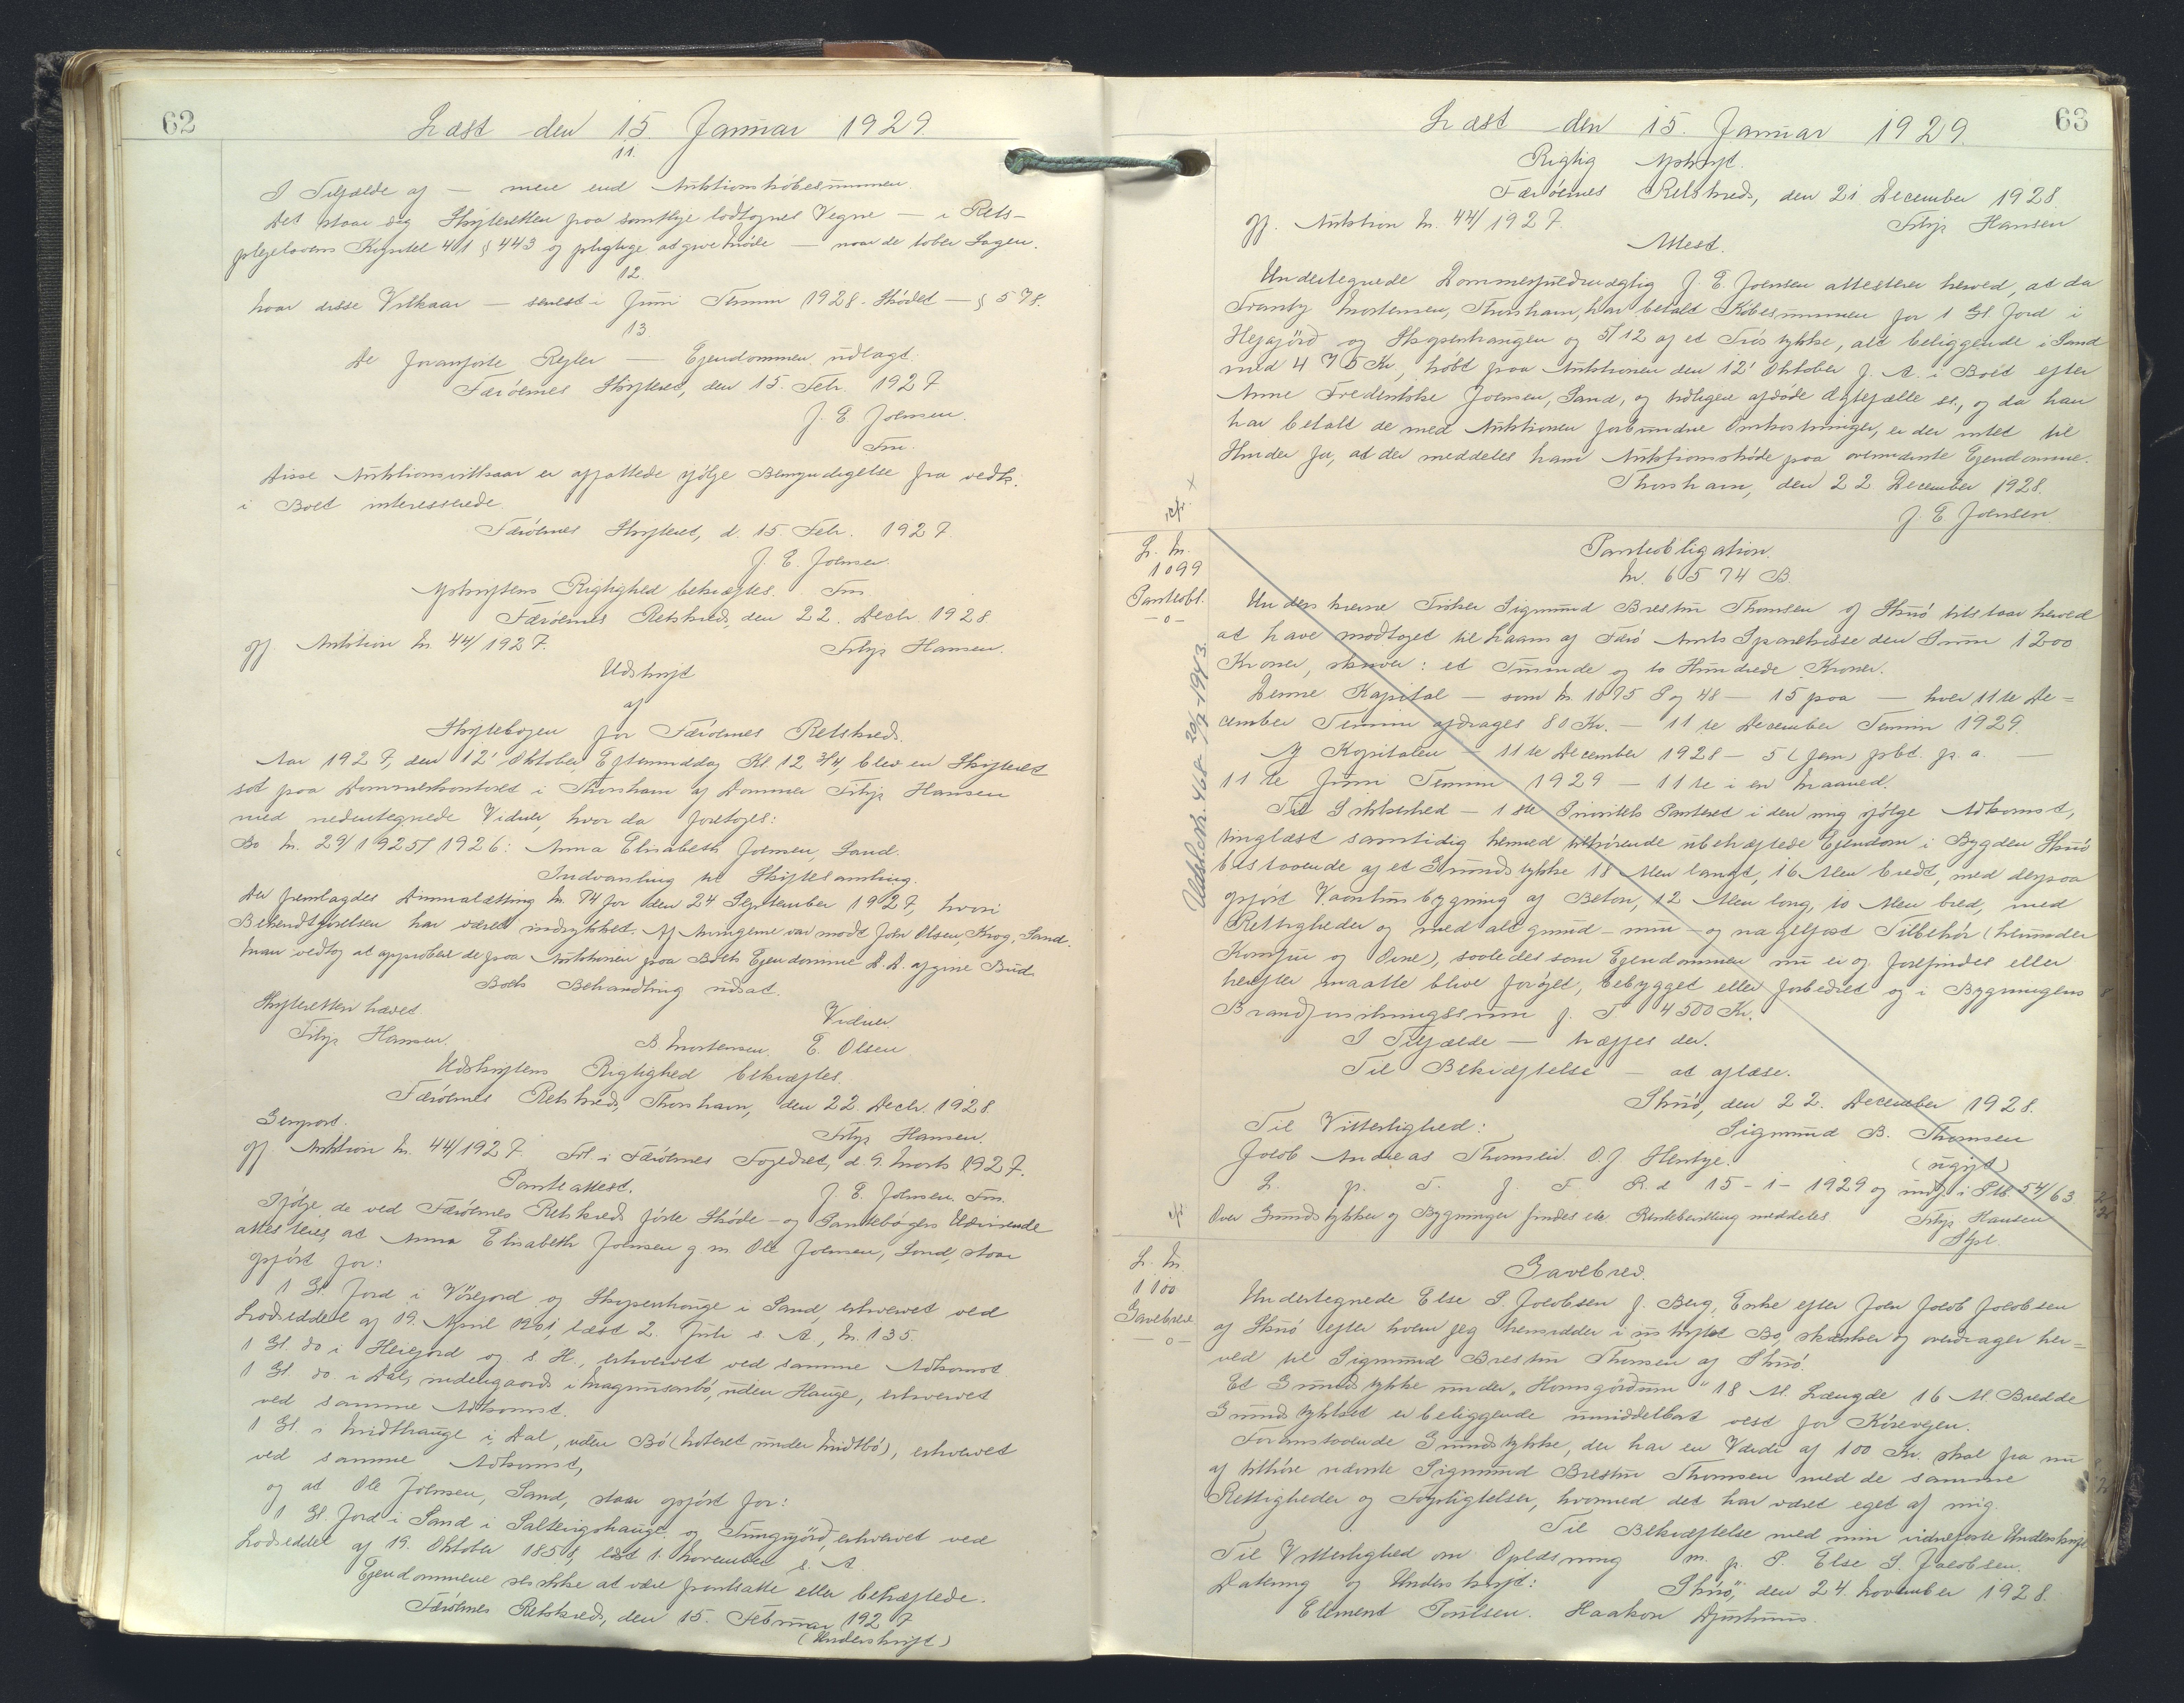 62
Læst den 15. Januar 1929.
11.
I Tilfælde af — mere end Auktionskøbesummen.
Det staar dog Skifteretten paa samtlige lodtagnes Vegne — i Rets-
plejelovens Kapitel 41 § 443 og pligtige at give Møde — naar de lober Sagen.
12.
hvor disse Vilkaar — senest i Juni Termin 1928. Skødet — § 578.
13
De foranførte Regler — Ejendommen udlagt.
Færøernes Skifteret, den 15. Febr. 1927
J. E. Joensen.
Fm.
Disse Auktionsvilkaar er affattede ifølge Bemyndigelse fra vedk.
i Boet interesserede
Færøernes Skifteret, d. 15 Febr. 1927.
J. E. Joensen.
Afskriftens Rigtighed bekræftes. Fm
Færøernes Retskreds, den 22. Decbr. 1928
Gf. Auktion Nr. 44/1927. Filip Hansen.
Udskrift
af
Skiftebogen for Færøernes Retskreds.
Aar 1927, den 12' Oktober, Eftermiddag Kl 12 3/4, blev en Skifteret
sat paa Dommerkontoret i Thorshavn af Dommer Filip Hansen
med nedentegnede Vidner, hvor da foretoges:
Bo Nr. 29/1925/1926: Anna Elisabeth Joensen, Sand.
Indvarsling til Skiftesamling.
Der fremlagdes Dimmalætting Nr. 74 for den 24 September 1927, hvori
Bekendtgørelsen har været indrykket. Af Arvingerne var mødt John Olsen, Krog, Sand.
Man vedtog at approbere de paa Auktionen paa Boets Ejendomme d. A. afgivne Bud
Boets Behandling udsat.
Skifteretten hævet. Vidner
Filip Hansen. B Mortensen. E. Olsen
Udskriftens Rigtighed bekræftes.
Færøernes Retskreds, Thorshavn, den 22 Decbr. 1928.
Genpart. Filip Hansen.
Gf. Auktion Nr. 44/1927. Frl. i Færøernes Fogedret, d. 9. Marts 1927.
Panteattest. J. E. Joensen. Fm.
Ifølge de ved Færøernes Retskreds førte Skøde- og Pantebøgers Udvisende
attesteres, at Anna Elisabeth Joensen g. m. Ole Joensen, Sand, staar
opført for:
1 Gl. Jord i Vörejord og Skopenhauge i Sand, erhvervet ved
Lodseddel af 19. April 1901, læst 2. Juli s. A., Nr. 135.
1 Gl. do i Heiejord og s H., erhvervet ved samme Adkomst
1 Gl. do. i Dal, nedengaards i Magnusarbø, uden Hauge, erhvervet
ved samme Adkomst.
1 Gl. i Midthauge i Dal, uden Bø (noteret under Midtbø), erhvervet
ved samme Adkomst,
og at Ole Joensen, Sand, staar opført for:
1 Gl. Jord i Sand i Salteirgshauge og Tungugörd, erhvervet ved
Lodseddel af 19. Oktober 1858, læst 1. November s. A.
Ejendommene ses ikke at være pantsatte eller behæftede.
Færøernes Retskreds, den 15. Februar 1927
(Underskrift)
63
Læst den 15. Januar 1929.
Rigtig Afskrift.
Færöernes Retskreds, den 21 December 1928.
Gf. Auktion Nr. 44/1927. Filip Hansen
Attest.
Undertegnede Dommerfuldmægtig J. E. Joensen attesterer herved, at da
Tranby Mortensen, Thorshavn, har betalt Købesummen for 1 Gl. Jord i
Hejagjörd og Skopenhaugen og 5/12 af et Tröstykke, alt beliggende i Sand
med 475 Kr., købt paa Auktionen den 12' Oktober f. A. i Boet efter
Anne Frederikke Joensen, Sand, og tidligere afdøde Ægtefælle st., og da han
har betalt de med Auktionen forbundne Omkostninger, er der intet til
Hinder for, at der meddeles ham Auktionsskøde paa ovennævnte Ejendomme.
Thorshavn, den 22 December 1928.
J. E. Joensen
L. Nr.
1099
Panteobl.
-o-
Udslettet. 468 20/7-1943.
Panteobligation.
Nr. 6574 B.
Underskrevne Fisker Sigmund Brestur Thomsen af Skuö tilstaar herved
at have modtaget til Laans af Færö Amts Sparekasse den Sum 1200
Kroner, skriver: et Tusinde og to Hundrede Kroner.
Denne Kapital — som Nr. 1095 S og 48 — 15 paa — hver 11te De=
cember Termin afdrages 80 Kr. — 11te December Termin 1929.
Af Kapitalen — 11te December 1928 — 5 (fem) pCt. p. a. —
11te Juni Termin 1929 — 11te i en Maaned.
Til Sikkerhed — 1ste Prioritets Panteret i den mig ifölge Adkomst,
tinglæst samtidig hermed tilhørende ubehæftede Ejendom i Bygden Skuö
bestaaende af et Grundstykke 18 Alen langt, 16 Alen bredt, med derpaa
opfört Vaaningsbygning af Beton, 12 Alen lang, 10 Alen bred, med
Rettigheder og med alt grund- mur- og nagelfast Tilbehör (herunder
Komfur og Ovne), saaledes som Ejendommen nu er og forefindes eller
herefter maatte blive foröget, bebygget eller forbedret og i Bygningens
Brandforsikringssum f. T 4500 Kr.
I Tilfælde — træffes der.
Til Bekræftelse — at aflæse.
Skuö, den 22. December 1928.
Til Vitterlighed: Sigmund B. Thomsen
Jacob Andreas Thomsen. O J Hentze. (ugift)
L. p. T. f. F. R. d 15-1-1929 og indf. i Ptb. 54/63
Over Grundstykker og Bygninger findes etc. Rentebevilling meddeles Filip Hansen
Spl.
L. Nr
1100
Gavebrev.
-o-
Gavebrev.
Undertegnede Else S. Jacobsen f. Berg, Enke efter Joen Jacob Jacobsen
af Skuö efter hvem jeg hensidder i uskiftet Bo, skænker og overdrager her=
ved til Sigmund Brestur Thomsen af Skuö.
Et Grundstykke under "Homsgördum" 18 Al. Længde 16 Al. Bredde
Grundstykket er beliggende umiddelbart vest for Körevejen.
Foranstaaende Grundstykke, der har en Værdi af 100 Kr. skal fra nu
af tilhöre nævnte Sigmund Brestur Thomsen med de samme
Rettigheder og Forpligtelser, hvormed det har været eget af mig.
Til Bekræftelse med min vidnefaste Underskrift
Til Vitterlighed om Oplæsning m. p. P. Else S. Jacobsen.
Datering og Underskrift: Skuö, den 24. November 1928.
Clement Poulsen. Haakon Djurhuus.